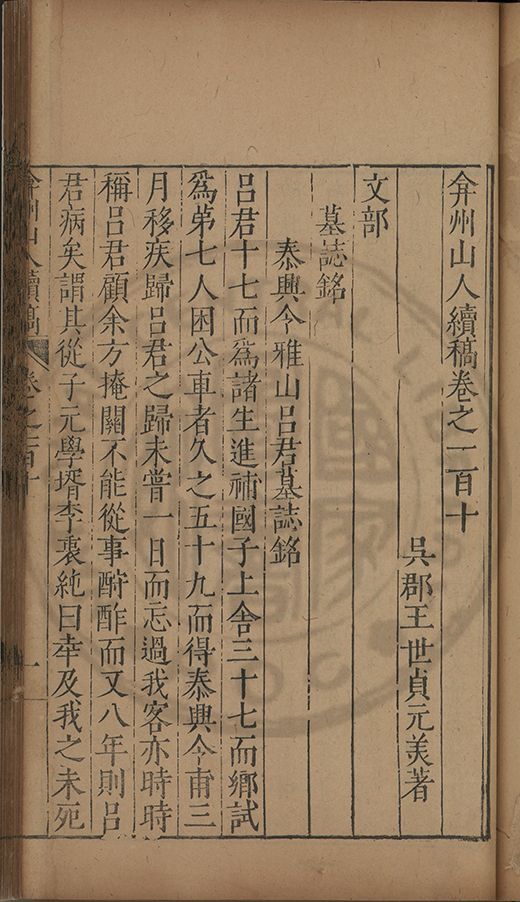 弇州山人續稿卷之一百十
吳郡王世貞元美著
文部
墓誌銘
泰興令雅山呂君墓誌銘
呂君十七而為諸生進補國子上舍三十七而鄉試
為第七人困公車者久之五十九而得泰興令甫三
月移疾歸呂君之歸未嘗一日而忘過我客亦時時
稱呂君顧余方掩關不能從事酧酢而又八年則呂
君病矣謂其從子元學壻李衷純曰幸及我之未死
弇州山人續稿 卷之一百十 一